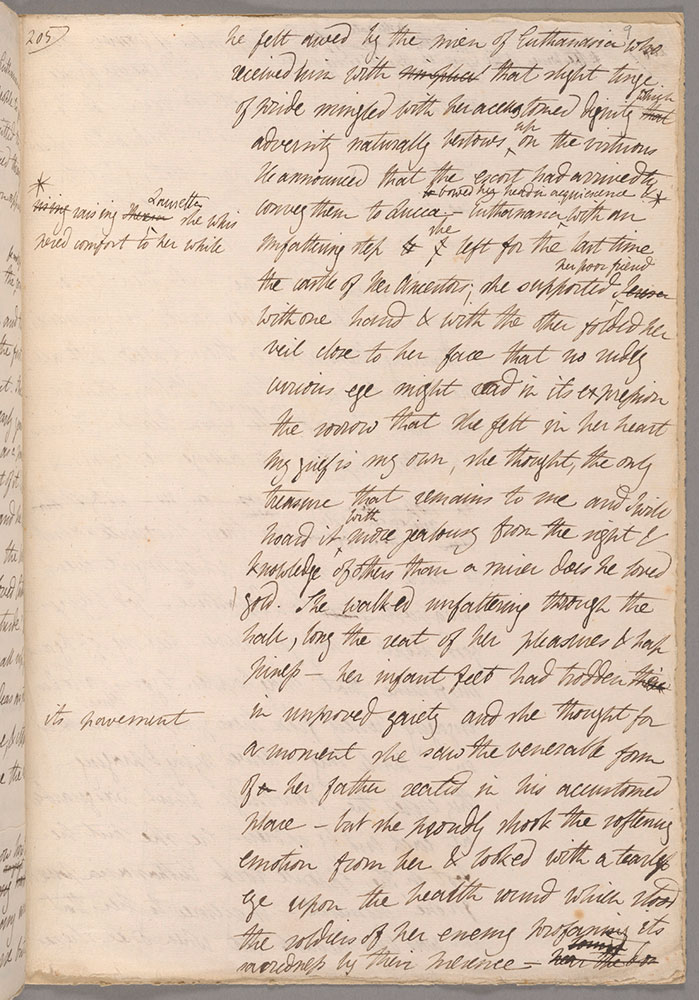 205
he felt awed by the mien of Euthanasia who
received him with that slight tinge
of pride mingled with her accustomed dignity which that
adversity naturally bestows up on the virtuous
He announced that the escort had arrived to
& bowed her head in acquiescence &
convey them to Lucca – Euthanasia with an
*
raising Lauretta she whis
pered comfort to her while
unfaltering step & she left for the last time
her poor friend
the castle of her Ancestors; she supported
with one hand & with the other folded her
veil close to her face that no rudely
curious eye might read in its expression
the sorrow that she felt in her heart
My grief is my own, she thought, the only
treasure that remains to me and I will
hoard it with more jealousy from the sight &
knowledge of others than a miser does he loved
gold. She walked unfaltering through the
hall, long the seat of her pleasures & hap
piness – her infant feet had trodden
its pavement
in unproved gaiety and she thought for
a moment she saw the venerable form
of her father seated in his accustomed
place – but she proudly shook the softening
emotion from her & looked with a tearless
eye upon the hearth round which stood
the soldiers of her enemy profaning its
sacredness by their presence –